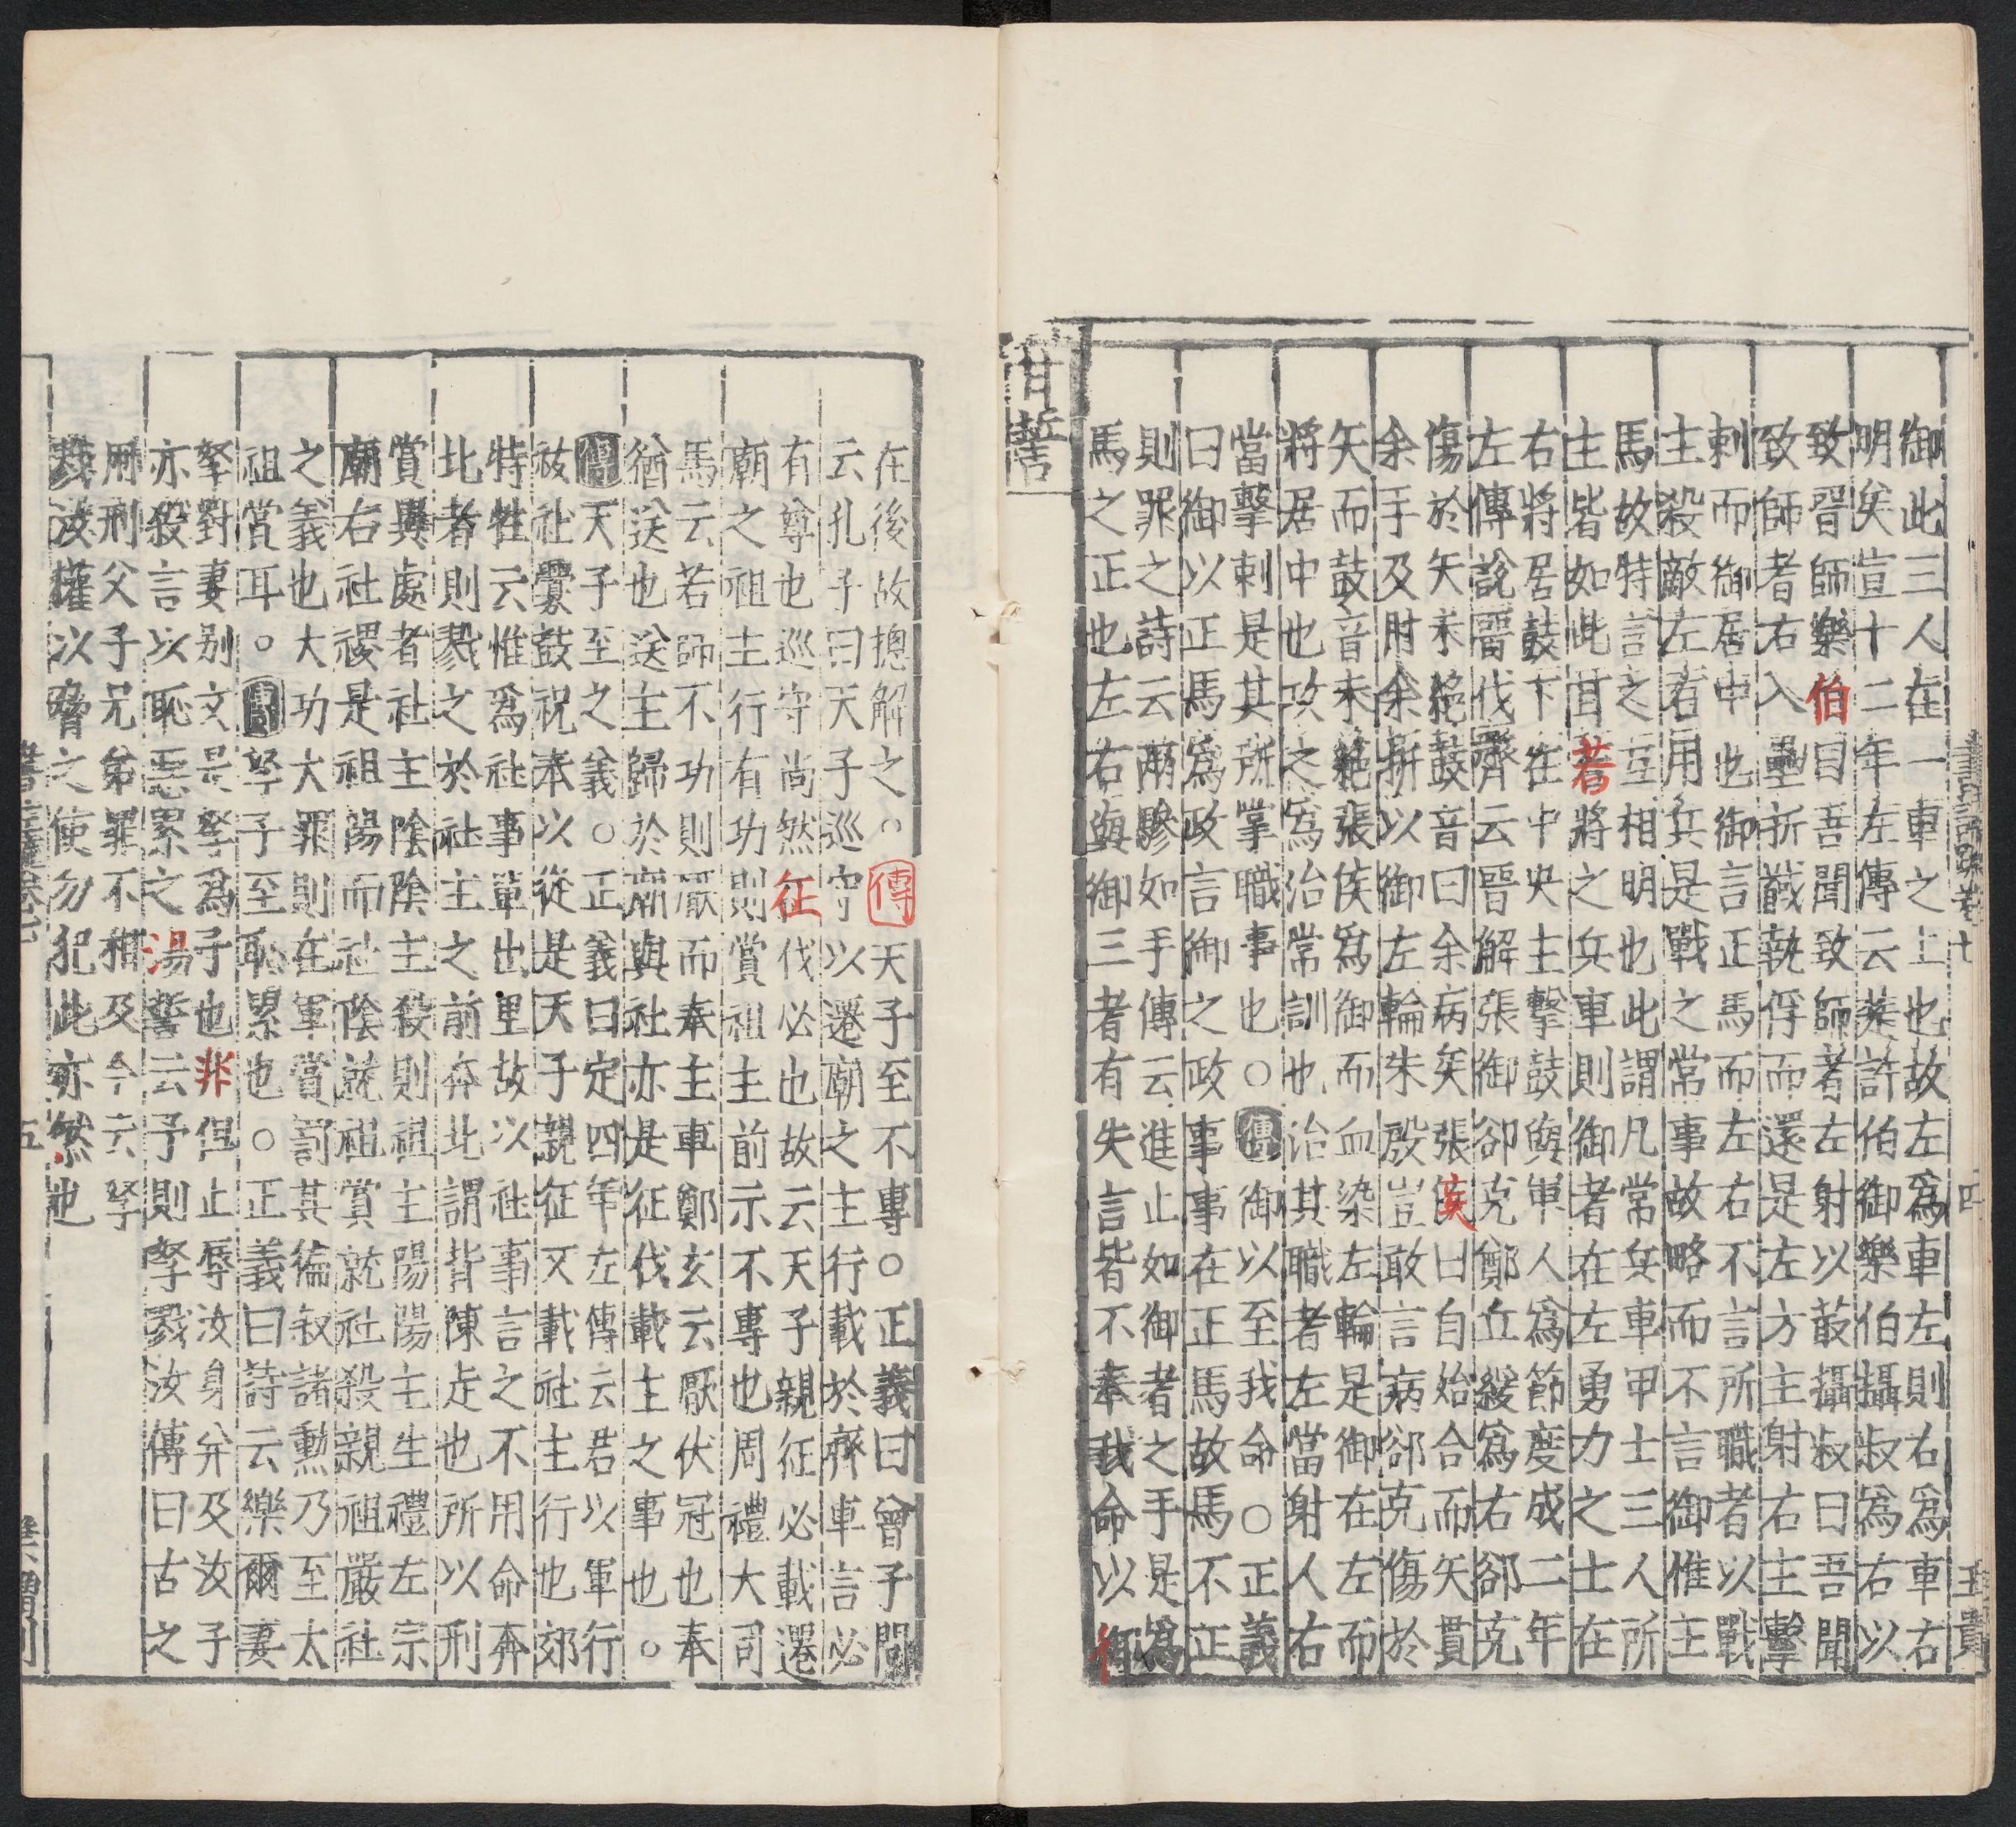 書註疏卷七 四 王貴
御此三人在一車之上也故左爲車左則右爲車右
明矣宣十二年左傳云楚許伯御樂伯攝叔爲右以
致晉師樂伯曰吾聞致師者左射以菆攝叔曰吾聞
致師者右入壘折馘執俘而還是左方主射右主擊
刺而御居中也御言正馬而左右不言所職者以戰
主殺敵左右用兵是戰之常事故略而不言御惟主
馬故特言之互相明也此謂凡常兵車甲士三人所
主皆如此耳若將之兵車則御者在左勇力之士在
右將居鼓下在中央主擊鼓與軍人爲節度成二年
左傳說晉伐齊云晉解張御郤克鄭丘緩爲右郤克
傷於矢未絕鼓音曰余病矣張侯曰自始合而矢貫
余手及肘余折以御左輪朱殷豈敢言病郤克傷於
矢而鼓音未絕張侯爲御而血染左輪是御在左而
將居中也攻之爲治常訓也治其職者左當射人右
當擊刺是其所掌職事也○傳御以至我命○正義
曰御以正馬爲政言御之政事事在正馬故馬不正
則罪之詩云兩驂如手傳云進止如御者之手是爲
馬之正也左右與御三者有失言皆不奉我命以御
甘誓
在後故摠解之○傳天子至不專○正義曰曾子問
云孔子曰天子巡守以遷廟之主行載於齊車言必
有尊也巡守尚然征伐必也故云天子親征必載遷
廟之祖主行有功則賞祖主前示不專也周禮大司
馬云若師不功則厭而奉主車鄭玄云厭伏冠也奉
猶送也送主歸於廟與社亦是征伐載主之事也○
傳天子至之義○正義曰定四年左傳云君以軍行
祓社釁鼓祝奉以從是天子親征又載社主行也郊
特牲云惟爲社事單出里故以社事言之不用命奔
北者則戮之於社主之前奔北謂背陳走也所以刑
賞異處者社主陰陰主殺則祖主陽陽主生禮左宗
廟右社稷是祖陽而社陰就祖賞就社殺親祖嚴社
之義也大功大罪則在軍賞罰其徧叙諸勳乃至太
祖賞耳○傳孥子至恥累也○正義曰詩云樂爾妻
孥對妻別文是孥爲子也非但止辱汝身并及汝子
亦殺言以恥惡累之湯誓云予則孥戮汝傳曰古之
用刑父子兄弟罪不相及今云孥
戮汝權以脅之使勿犯此亦然也
五